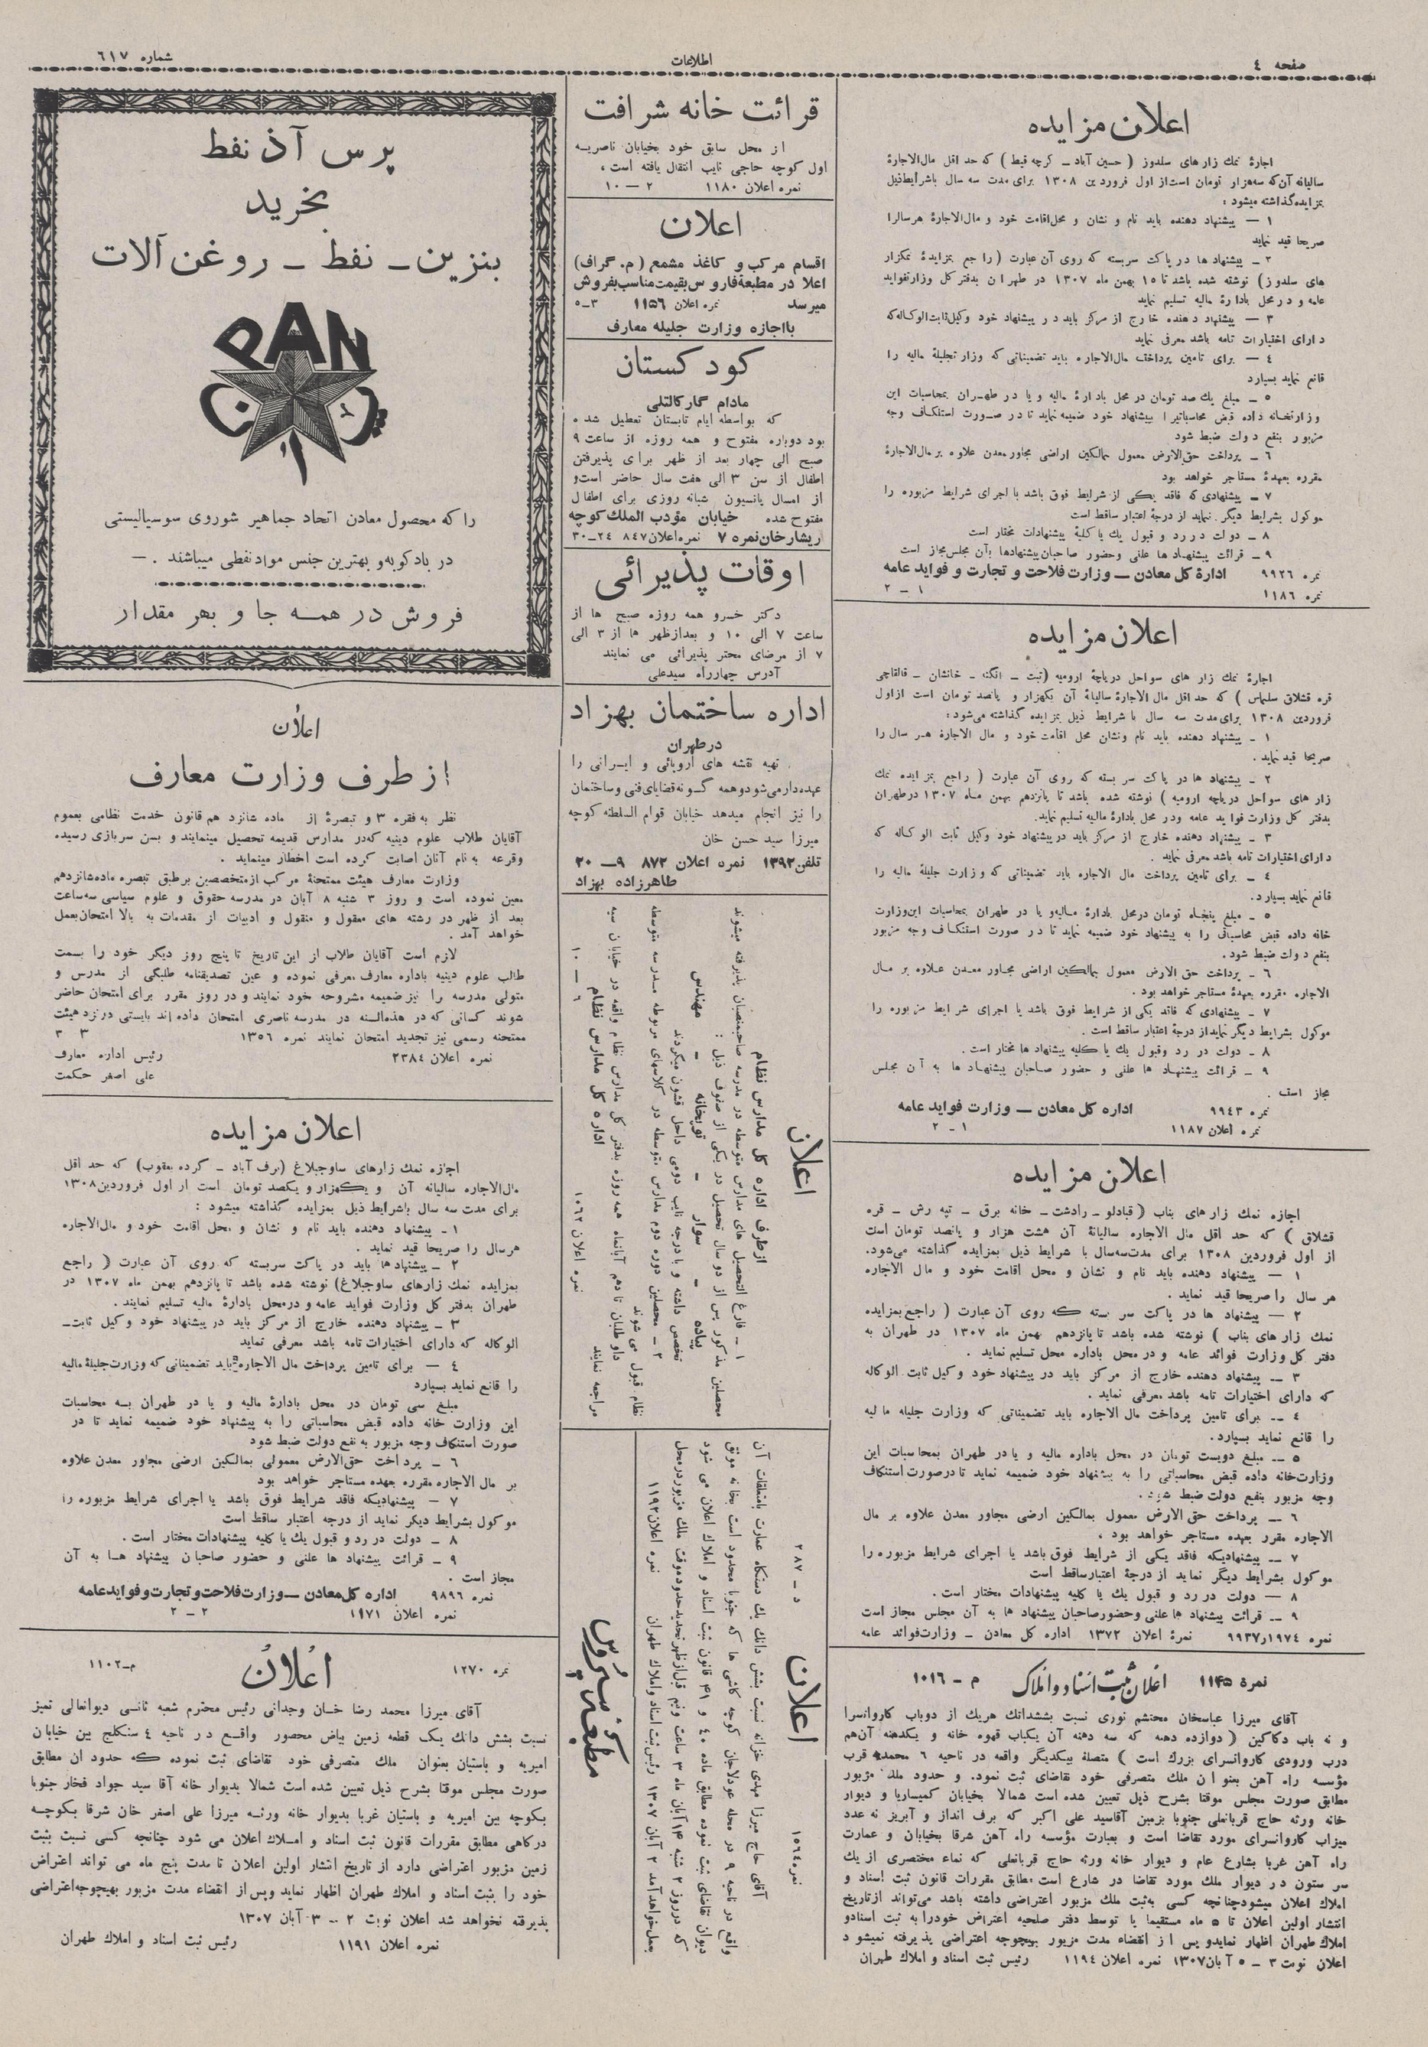 صفحه ٤
اطلاعات
شماره ٦١٧
اعلان مزایده
اجارهٔ نمك زار های سلدوز ( حسین آباد ــ گرچه قبط ) که حد اقل مال‌الاجارهٔ
سالیانه آن که سه‌هزار تومان است از اول فروردین ١٣٠٨ برای مدت سه سال باشرایط ذیل
بمزایده گذاشته میشود :
١ ــ پیشنهاد دهنده باید نام و نشان و محل اقامت خود و مال الاجارهٔ هرسالرا
صریحا قید نماید
٢ ــ پیشنهاد ها در پاکت سربسته که روی آن عبارت ( راجع بمزایدهٔ نمکزار
های سلدوز ) نوشته شده باشد تا ١٥ بهمن ماه ١٣٠٧ در طهران بدفتر کل وزارتفواید
عامه و در محل بادارهٔ مالیه تسلیم نماید
٣ ــ پیشنهاد دهنده خارج از مرکز باید در پیشنهاد خود وکیل ثابت‌الوکاله که
دارای اختیارات تامه باشد معرفی نماید
٤ ــ برای تامین پرداخت مال‌الاجاره باید تضمیناتی که وزارتجلیلهٔ مالیه را
قانع نماید بسپارد
٥ ــ مبلغ یك صد تومان در محل بادارهٔ مالیه و یا در طهران بمحاسبات این
وزارتخانه داده قبض محاسباتیرا بپیشنهاد خود ضمیمه نماید تا در صورت استنکاف وجه
مزبور بنفع دولت ضبط شود
٦ ــ پرداخت حق‌الارض معمول بمالکین اراضی مجاور معدن علاوه بر مال‌الاجارهٔ
مقرره بعهدهٔ مستاجر خواهد بود
٧ ــ پیشنهادی که فاقد یکی از شرایط فوق باشد یا اجرای شرایط مزبوره را
موکول بشرایط دیگر نماید از درجهٔ اعتبار ساقط است
٨ ــ دولت در رد و قبول یك یا کلیهٔ پیشنهادات مختار است
٩ ــ قرائت پیشنهاد ها علنی و حضور صاحبان پیشنهادها بآن مجلس مجاز است
نمره ٩٩٢٦ ادارهٔ کل معادن ــ وزارت فلاحت و تجارت و فواید عامه
نمره ١١٨٦ ١ ــ ٢
اعلان مزایده
اجارهٔ نمك زار های سواحل دریاچهٔ ارومیه ( ثبت ــ انگنه ــ خانشان ــ قالقاچی
قره قشلاق سلماس ) که حد اقل مال الاجارهٔ سالیانهٔ آن یکهزار و پانصد تومان است ازاول
فروردین ١٣٠٨ برای مدت سه سال با شرایط ذیل بمزایده گذاشته می‌شود :
١ ــ پیشنهاد دهنده باید نام ونشان محل اقامت خود و مال الاجارهٔ هر سال را
صریحا قید نماید .
٢ ــ پیشنهاد ها در پاکت سر بسته که روی آن عبارت ( راجع بمزایده نمك
زار های سواحل دریاچه ارومیه ) نوشته شده باشد تا پانزدهم بهمن ماه ١٣٠٧ در طهران
بدفتر کل وزارت فواید عامه ودر محل بادارهٔ مالیه تسلیم نماید .
٣ ــ پیشنهاد دهنده خارج از مرکز باید درپیشنهاد خود وکیل ثابت الوکاله که
دارای اختیارات تامه باشد معرفی نماید .
٤ ــ برای تامین پرداخت مال الاجاره باید تضمیناتی که وزارت جلیلهٔ مالیه را
قانع نماید بسپارد .
٥ ــ مبلغ پنجاه تومان درمحل بادارهٔ مالیه و یا در طهران بمحاسبات این وزارت
خانه داده قبض محاسباتی را به پیشنهاد خود ضمیمه نماید تا در صورت استنکاف وجه مزبور
بنفع دولت ضبط شود .
٦ ــ پرداخت حق الارض معمول بمالکین اراضی مجاور معدن علاوه بر مال
الاجاره مقرره بعهدهٔ مستاجر خواهد بود .
٧ ــ پیشنهادی که فاقد یکی از شرایط فوق باشد یا اجرای شرایط مزبوره را
موکول بشرایط دیگر نماید از درجهٔ اعتبار ساقط است .
٨ ــ دولت در رد وقبول یك یا کلیه پیشنهاد ها مختار است .
٩ ــ قرائت پیشنهاد ها علنی و حضور صاحبان پیشنهاد ها به آن مجلس
مجاز است .
نمره ٩٩٤٣ اداره کل معادن ــ وزارت فواید عامه
نمره اعلان ١١٨٧ ١ ــ ٢
اعلان مزایده
اجازه نمك زار های بناب ( قبادلو ــ رادشت ــ خانه برق ــ تپه رش ــ قره
قشلاق ) که حد اقل مال الاجاره سالیانهٔ آن هشت هزار و پانصد تومان است
از اول فروردین ١٣٠٨ برای مدت سه‌سال با شرایط ذیل بمزایده گذاشته می‌شود.
١ ــ پیشنهاد دهنده باید نام و نشان و محل اقامت خود و مال الاجاره
هر سال را صریحا قید نماید .
٢ ــ پیشنهاد ها در پاکت سر بسته که روی آن عبارت ( راجع بمزایده
نمك زار های بناب ) نوشته شده باشد تا پانزدهم بهمن ماه ١٣٠٧ در طهران به
دفتر کل وزارت فوائد عامه و درمحل باداره محل تسلیم نماید .
٣ ــ پیشنهاد دهنده خارج از مرکز باید در پیشنهاد خود وکیل ثابت الوکاله
که دارای اختیارات تامه باشد معرفی نماید .
٤ ــ برای تامین پرداخت مال الاجاره باید تضمیناتی که وزارت جلیله مالیه
را قانع نماید بسپارد.
٥ ــ مبلغ دویست تومان در محل باداره مالیه و یا در طهران بمحاسبات این
وزارت‌خانه داده قبض محاسباتی را به پیشنهاد خود ضمیمه نماید تا درصورت استنکاف
وجه مزبور بنفع دولت ضبط شود .
٦ ــ پرداخت حق الارض معمول بمالکین ارضی مجاور معدن علاوه بر مال
الاجاره مقرر بعهده مستاجر خواهد بود .
٧ ــ پیشنهادیکه فاقد یکی از شرایط فوق باشد یا اجرای شرایط مزبوره را
موکول بشرایط دیگر نماید از درجهٔ اعتبار ساقط است
٨ ــ دولت در رد و قبول یك یا کلیه پیشنهاد ها مختار است .
٩ ــ قرائت پیشنهاد ها علنی و حضور صاحبان پیشنهاد ها به آن مجلس مجاز است
نمره ٩٩٣٧٫١٩٧٤ نمرهٔ اعلان ١٣٧٢ اداره کل معادن ــ وزارت فوائد عامه
نمره ١١٤٥ اعلان ثبت اسناد و املاك م ــ ١٠١٦
آقای میرزا عباسخان محتشم نوری نسبت بششدانك هریك از دوباب کاروانسرا
و نه باب دکاکین ( دوازده دهنه که سه دهنه آن یکباب قهوه خانه و یکدهنه آن‌هم
درب ورودی کاروانسرای بزرك است ) متصله بیکدیگر واقعه در ناحیه ٦ محمدیه قرب
مؤسسه راه آهن بعنوان ملك متصرفی خود تقاضای ثبت نمود. و حدود ملك مزبور
مطابق صورت مجلس موقتا بشرح ذیل تعیین شده است شمالا بخیابان کمیساریا و دیوار
خانه ورثه حاج قربانعلی جنوبا بزمین آقاسید علی اکبر که برف انداز و آبریز نه عدد
میزاب کاروانسرای مورد تقاضا است و بعبارت مؤسسه راه آهن شرقا بخیابان و عمارت
راه آهن غربا بشارع عام و دیوار خانه ورثه حاج قربانعلی که نماء مختصری از یك
سر ستون در دیوار ملك مورد تقاضا در شارع است مطابق مقررات قانون ثبت اسناد و
املاك اعلان میشود چنانچه کسی به‌ثبت ملك مزبور اعتراضی داشته باشد می‌تواند از تاریخ
انتشار اولین اعلان تا ٥ ماه مستقیما یا توسط دفتر صلحیه اعتراض خودرا به ثبت اسنادو
املاك طهران اظهار نماید و پس از انقضاء مدت مزبور بهیچوجه اعتراضی پذیرفته نمیشود
اعلان نوبت ٣ ــ ٥ آبان ١٣٠٧ نمره اعلان ١١٩٤ رئیس ثبت اسناد و املاك طهران
قرائت خانه شرافت
از محل سابق خود بخیابان ناصریه
اول کوچه حاجی نایب انتقال یافته است ،
نمره اعلان ١١٨٠ ٢ ــ ١٠
اعلان
اقسام مرکب و کاغذ مشمع ( م . گراف )
اعلا در مطبعهٔ فاروس بقیمت مناسب بفروش
میرسد نمره اعلان ١١٥٦ ٣ــ٥
با اجازه وزارت جلیله معارف
کودکستان
مادام گارکالتلی
که بواسطه ایام تابستان تعطیل شده
بود دوباره مفتوح و همه روزه از ساعت ٩
صبح الی چهار بعد از ظهر برای پذیرفتن
اطفال از سن ٣ الی هفت سال حاضر است و
از امسال پانسیون شبانه روزی برای اطفال
مفتوح شده خیابان مؤدب الملك کوچه
ریشارخان نمره ٧ نمره اعلان ٨٤٧ ٢٤ــ٣٠
اوقات پذیرائی
دکتر خسرو همه روزه صبح ها از
ساعت ٧ الی ١٠ و بعدازظهر ها از ٣ الی
٧ از مرضای محتر پذیرائی می نمایند
آدرس چهارراه سیدعلی
اداره ساختمان بهزاد
درطهران
تهیه نقشه های اروپائی و ایرانی را
عهده‌دار می‌شود و همه گونه قضایای فنی و ساختمان
را نیز انجام میدهد خیابان قوام السلطنه کوچه
میرزا سید حسن خان
تلفن ١٣٩٢ نمره اعلان ٨٧٢ ٩ ــ ٢٠
طاهرزاده بهزاد
اعلان
ازطرف اداره کل مدارس نظام
١ ــ فارغ التحصیل های مدارس متوسطه در مدرسه صاحبمنصبان پذیرفته میشوند
محصلین مذکور پس از دو سال تحصیل در یکی از صنوف ذیل :
پیاده ــ سوار ــ توپخانه ــ مهندس
تخصص داشته و با درجه نایب دومی داخل قشون میگردند
٢ ــ محصلین دوره دوم مدارس متوسطه در کلاسهای مربوطه مدرسه متوسطه
نظام قبول می شوند
داوطلبان تا دهم آبانماه همه روزه بدفتر کل مدارس نظام واقعه در خیابان سپه
مراجعه نمایند اداره کل مدارس نظام
نمره اعلان ١٠٦٢ ٦ ــ ١٠
نمره ١٥٦٤ اعلان د ــ ٢٨٧
آقای حاج میرزا مهدی خزانه نسبت بشش دانك یك دستگاه عمارت بامتعلقات آن
واقع در ناحیه ٩ در محله عودلاجان کوچه کاشی ها که جنوبا محدود است بخانه موثق
دیوان تقاضای ثبت نموده مطابق ماده ٤٠ و ٤١ قانون ثبت اسناد و املاك اعلان می شود
که درروز ٢ شنبه ١٤ آبان ماه ٣ ساعت ونیم قبل‌ازظهر تحدید حدود موقت ملك مزبور درمحل
بعمل خواهد آمد ٢ آبان ١٣٠٧ رئیس ثبت اسناد و املاك طهران نمره اعلان ١١٩٢
مطبعهٔ سیروس
پرس آذ نفط
بخرید
بنزین ــ نفط ــ روغن آلات
PAN
را که محصول معادن اتحاد جماهیر شوروی سوسیالیستی
در بادکوبه و بهترین جنس مواد نفطی میباشند . ــ
فروش در همه جا و بهر مقدار
اعلان
از طرف وزارت معارف
نظر به فقره ٣ و تبصرهٔ از ماده شانزد هم قانون خدمت نظامی بعموم
آقایان طلاب علوم دینیه که‌در مدارس قدیمه تحصیل مینمایند و بسن سربازی رسیده
وقرعه به نام آنان اصابت کرده است اخطار مینماید .
وزارت معارف هیئت ممتحنهٔ مرکب ازمتخصصین برطبق تبصره ماده‌شانزدهم
معین نموده است و روز ٣ شنبه ٨ آبان در مدرسه حقوق و علوم سیاسی سه‌ساعت
بعد از ظهر در رشته های معقول و منقول و ادبیات از مقدمات به بالا امتحان بعمل
خواهد آمد .
لازم است آقایان طلاب از این تاریخ تا پنج روز دیگر خود را بسمت
طالب علوم دینیه باداره معارف معرفی نموده و عین تصدیقنامه طلبگی از مدرس و
متولی مدرسه را نیز ضمیمه مشروحه خود نمایند و در روز مقرر برای امتحان حاضر
شوند کسانی که در هذه‌السنه در مدرسه ناصری امتحان داده اند بایستی درنزد هیئت
ممتحنه رسمی نیز تجدید امتحان نمایند نمره ١٣٥٦ ٣ ٣
نمره اعلان ٢٣٨٤ رئیس اداره معارف
علی اصغر حکمت
اعلان مزایده
اجازه نمك زارهای ساوجبلاغ ( برف آباد ــ گرده یعقوب ) که حد اقل
مال‌الاجاره سالیانه آن و یکهزار و یکصد تومان است از اول فروردین ١٣٠٨
برای مدت سه سال باشرایط ذیل بمزایده گذاشته میشود :
١ ــ پیشنهاد دهنده باید نام و نشان و محل اقامت خود و مال‌الاجاره
هرسال را صریحا قید نماید .
٢ ــ پیشنهاد ها باید در پاکت سربسته که روی آن عبارت ( راجع
بمزایده نمك زارهای ساوجبلاغ ) نوشته شده باشد تا پانزدهم بهمن ماه ١٣٠٧ در
طهران بدفتر کل وزارت فواید عامه و درمحل بادارهٔ مالیه تسلیم نمایند .
٣ ــ پیشنهاد دهنده خارج از مرکز باید در پیشنهاد خود وکیل ثابت‌ــ
الوکاله که دارای اختیارات تامه باشد معرفی نماید
٤ ــ برای تامین پرداخت مال الاجاره باید تضمیناتی که وزارت‌جلیلهٔ مالیه
را قانع نماید بسپارد
مبلغ سی تومان در محل بادارهٔ مالیه و یا در طهران به محاسبات
این وزارت خانه داده قبض محاسباتی را به پیشنهاد خود ضمیمه نماید تا در
صورت استنکاف وجه مزبور به نفع دولت ضبط شود
٦ ــ پرداخت حق‌الارض معمولی بمالکین ارضی مجاور معدن علاوه
بر مال الاجاره مقرره بعهده مستاجر خواهد بود
٧ ــ پیشنهادیکه فاقد شرایط فوق باشد یا اجرای شرایط مزبوره را
موکول بشرایط دیگر نماید از درجه اعتبار ساقط است
٨ ــ دولت در رد و قبول یك یا کلیه پیشنهادات مختار است .
٩ ــ قرائت پیشنهاد ها علنی و حضور صاحبان پیشنهاد ها به آن
مجاز است .
نمره ٩٨٩٦ اداره کل معادن ــ وزارت فلاحت و تجارت و فواید عامه
نمره اعلان ١٩٧١ ٢ ــ ٢
نمره ١٢٧٠ اعلان م ــ ١١٠٢
آقای میرزا محمد رضا خان وجدانی رئیس محترم شعبه ثانسی دیوانعالی تمیز
نسبت بشش دانك یك قطعه زمین بیاض محصور واقع در ناحیه ٤ سنگلج بین خیابان
امیریه و باستیان بعنوان ملك متصرفی خود تقاضای ثبت نموده که حدود ان مطابق
صورت مجلس موقتا بشرح ذیل تعیین شده است شمالا بدیوار خانه آقا سید جواد فخار جنوبا
بکوچه بین امیریه و باستیان غربا بدیوار خانه ورثه میرزا علی اصغر خان شرقا بکوچه
درکاهی مطابق مقررات قانون ثبت اسناد و املاك اعلان می شود چنانچه کسی نسبت بثبت
زمین مزبور اعتراضی دارد از تاریخ انتشار اولین اعلان تا مدت پنج ماه می تواند اعتراض
خود را بثبت اسناد و املاك طهران اظهار نماید و پس از انقضاء مدت مزبور بهیچوجه اعتراضی
پذیرفته نخواهد شد اعلان نوبت ٢ ــ ٣ آبان ١٣٠٧
نمره اعلان ١١٩١ رئیس ثبت اسناد و املاك طهران